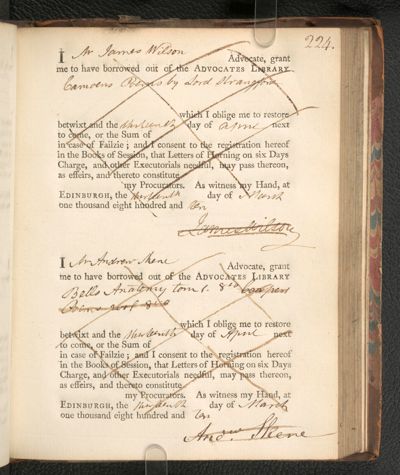 224.
I Mr James Wilson Advocate, grant
me to have borrowed out of the ADVOCATES LIBRARY
Camoens Poems by Lord Strangford
which I oblige me to restore
betwixt and the thirteenth day of April next
to come, or the Sum of
in case of Failzie; and I consent to the registration hereof
in the Books of Session, that Letters of Horning on six Days
Charge, and other Executorials needful, may pass thereon,
as effeirs, and thereto constitute
my Procurators. As witness my Hand, at
EDINBURGH, the thirteenth day of March
one thousand eight hundred and ten
James Wilson
I Mr Andrew Skene Advocate, grant
me to have borrowed out of the ADVOCATES LIBRARY
Bells Anatomy tom 1. 8vo
8vo
which I oblige me to restore
betwixt and the thirteenth day of April next
to come, or the Sum of
in case of Failzie; and I consent to the registration hereof
in the Books of Session, that Letters of Horning on six Days
Charge, and other Executorials needful, may pass thereon,
as effeirs, and thereto constitute
my Procurators. As witness my Hand, at
EDINBURGH, the thirteenth day of March
one thousand eight hundred and ten
Andw Skene